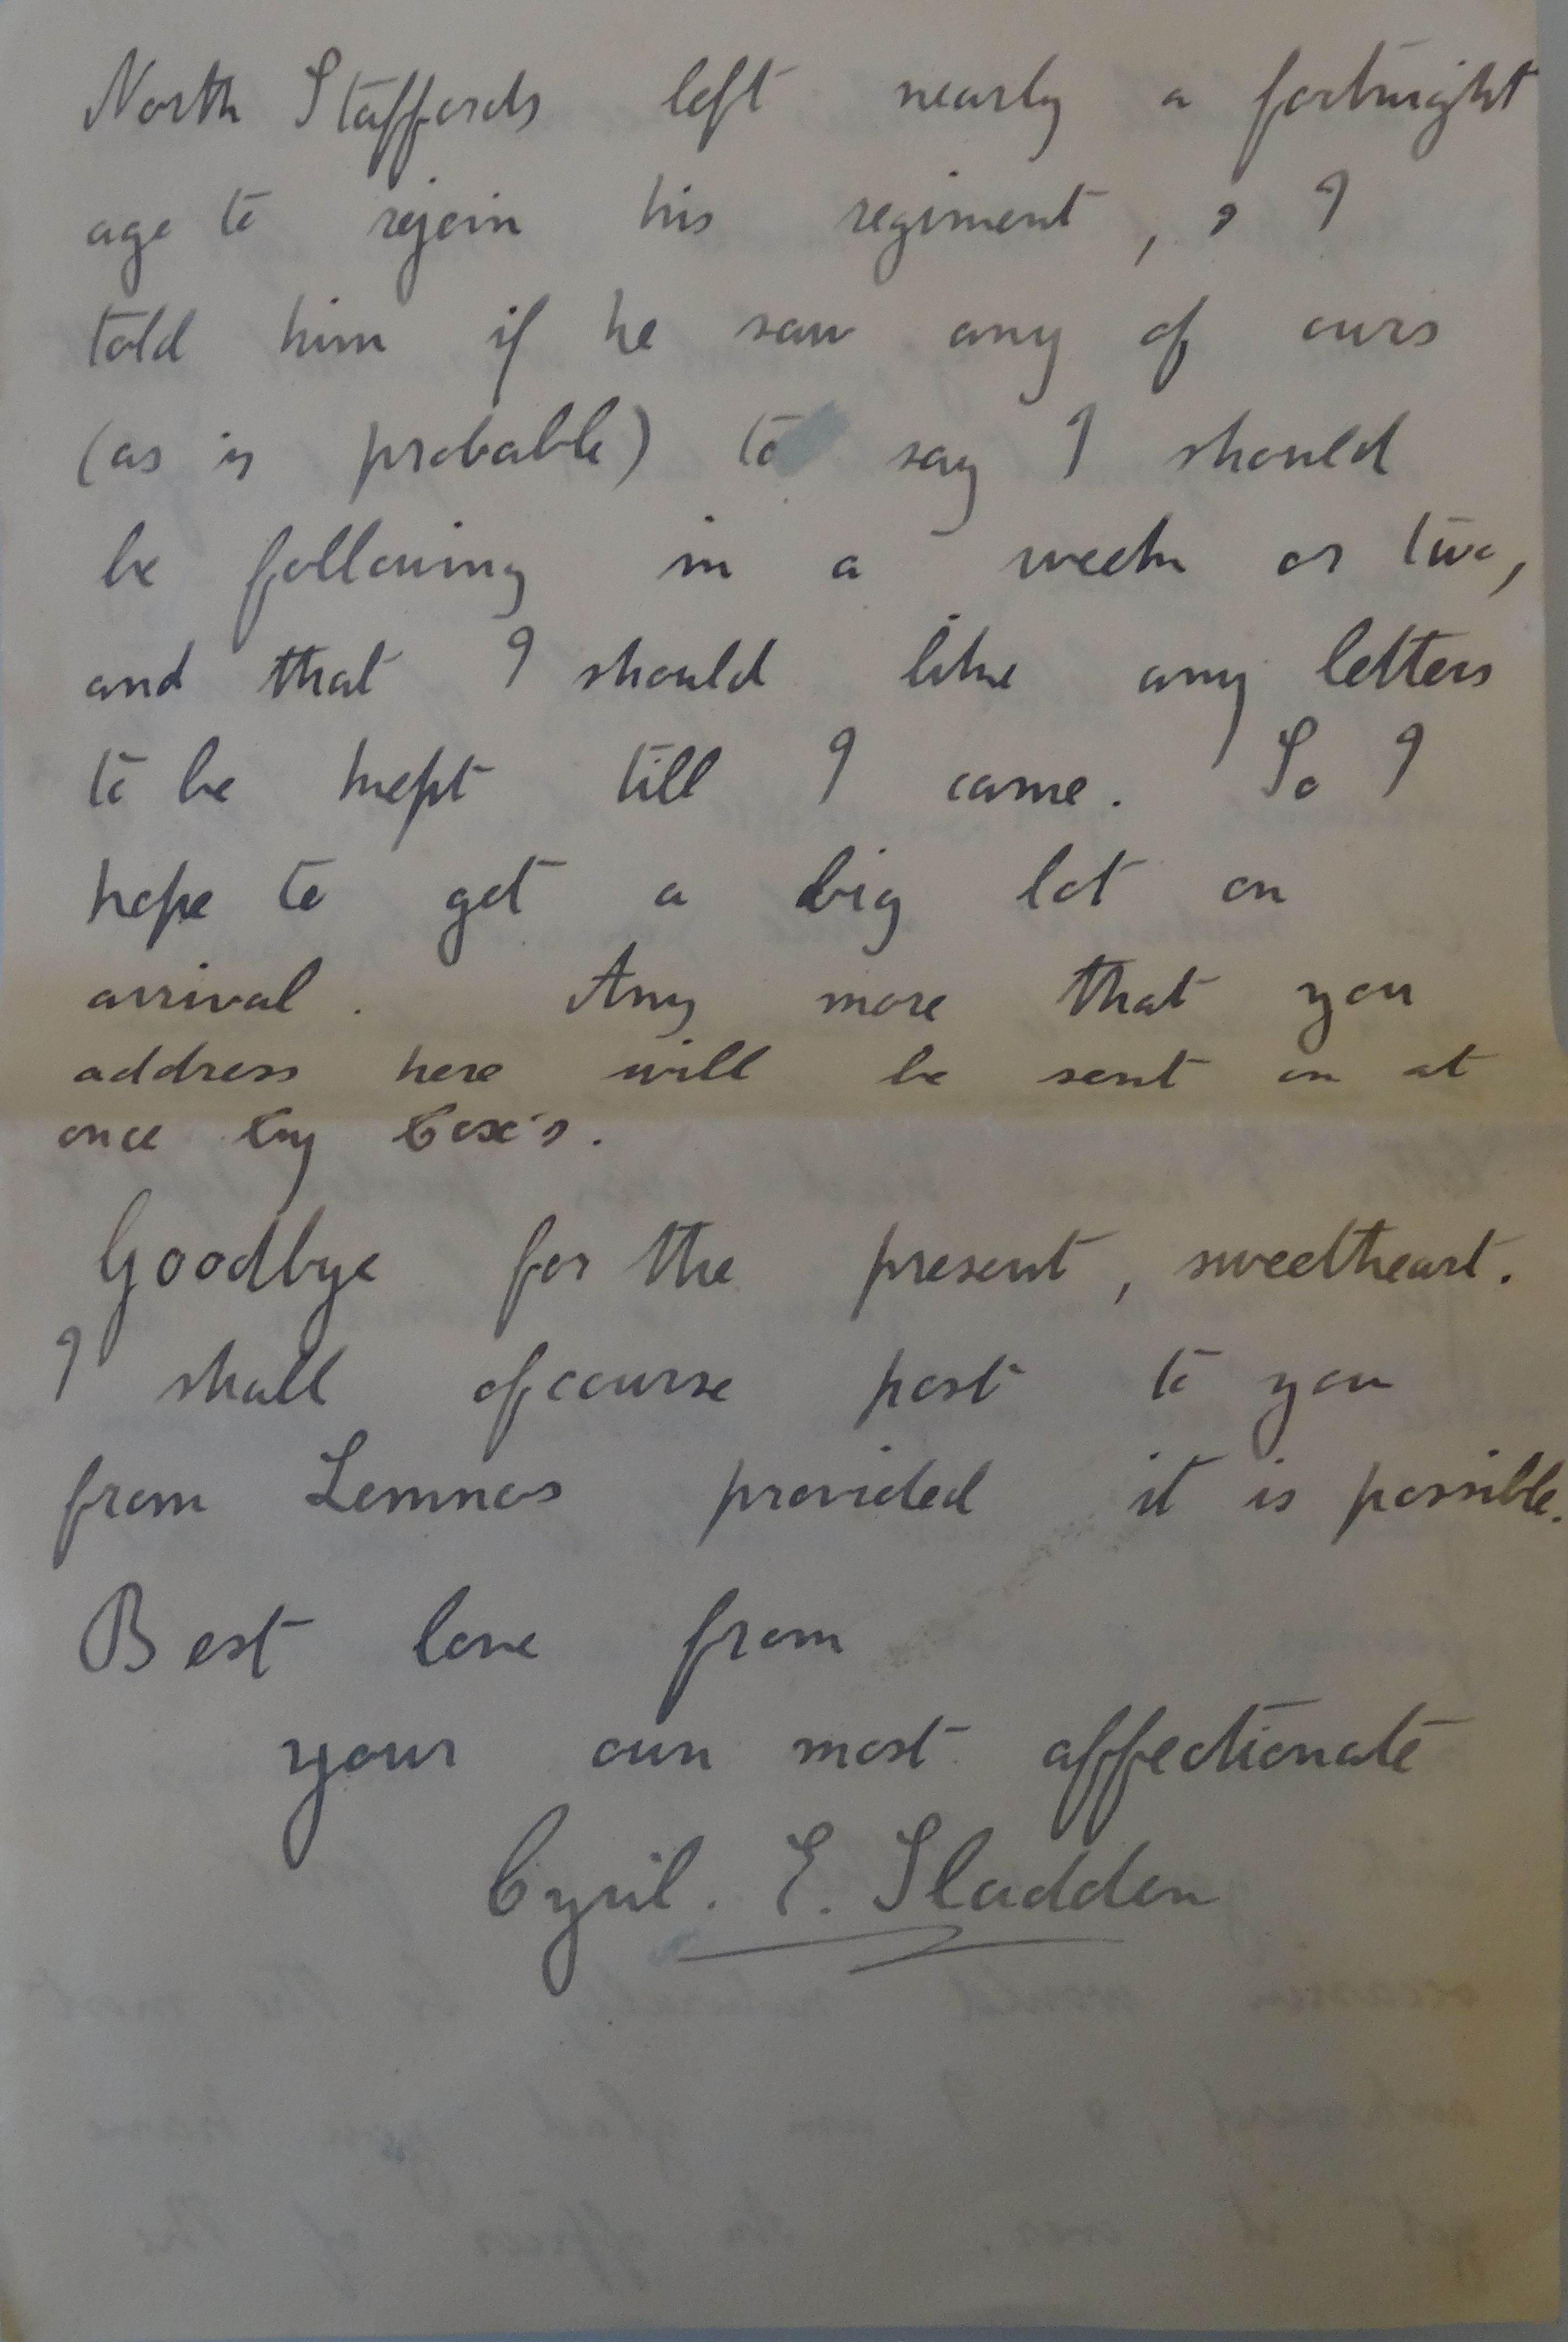 North Staffords left nearly a fortnight
ago to rejoin his regiment, & I
told him if he saw any of ours
(as is probable) to say I should
be following in a week or two,
and that I should like any letters
to be kept till I came. So I
hope to get a big lot on
arrival. Any more that you
address here will be sent on at
once by Cox's.
Goodbye for the present, sweetheart.
I shall ofcourse post to you
from Lemnos provided it is possible.
Best love from
your own most affectionate
Cyril. E. Sladden